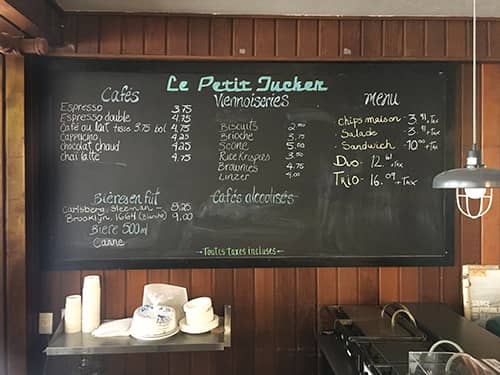 Le Petit Tucker
Cafés
Espresso 3.75
Espresso double 4.75
Café au lait tasse 3.75 bol 4.75
Cappucino 4.25
chocolat chaud 4.25
chai latte 4.75
Bières en fût
Carlsberg, Sleeman - 8.25
Brooklyn, 1664 (Blanche) 9.00
Bière 500ml
Canne
Viennoiseries
Biscuits
Brioche 3.75
Scone 5.00
Rice Krispies 3.50
Brownies 4.75
Linzer 4.00
Cafés alcoolisés
→ Toutes taxes incluses ←
Menu
Chips maison - 3. +Tax
Salade - 3. +Tax
Sandwich - 10 +Tax
Duo - 12. +Tax
Trio - 16.09 +Tax